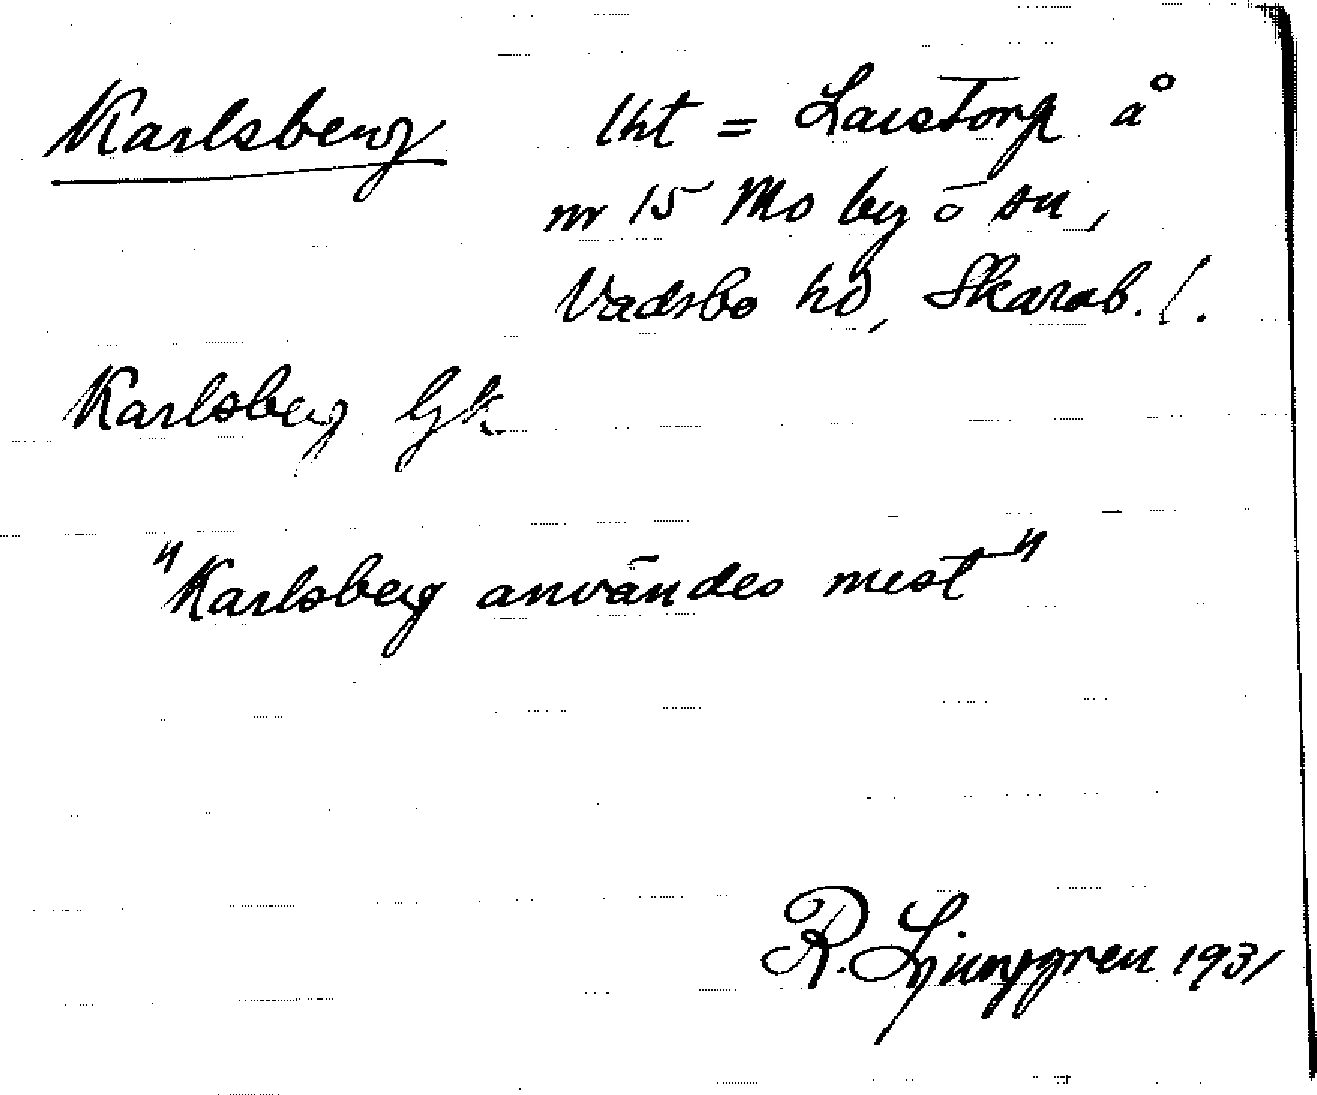 Karlsberg lht = Larstorp å
nr 15 Mo by ö sn,
Vadsbo hd, Skarab. l.
Karlsberg Gk
"Karlsberg användes mest"
R. Ljunggren 1931